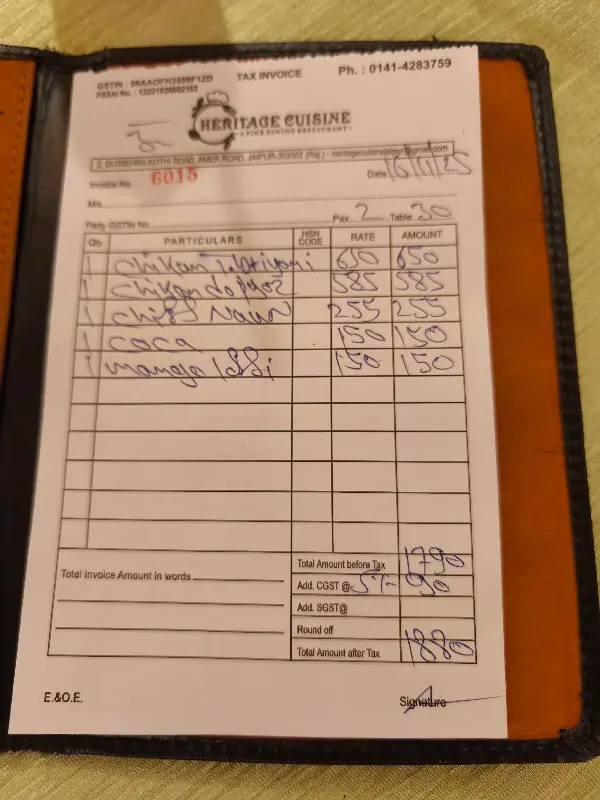 GSTIN : 08AAOFH3500F1ZD TAX INVOICE Ph. : 0141-4283759
FSSAI No. : 12221026002163
HERITAGE CUISINE
A FINE DINING RESTAURANT
2, DUSSEHRA KOTHI ROAD, AMER ROAD, JAIPUR-302002 (Raj.) - heritagecuisinejaipur@gmail.com
Invoice No. 6015 Date 16/11/25
M/s.
Party GSTIN No. Pax 2 Table 30
Qty. PARTICULARS HSN CODE RATE AMOUNT
1 chikan 650 650
1 chikan 585 585
1 Naan 255 255
1 coca 150 150
1 mango lssi 150 150
Total Amount before Tax 1790
Total Invoice Amount in words
Add. CGST @ 5% 90
Add. SGST@
Round off
Total Amount after Tax 1880
E.&O.E. Signature